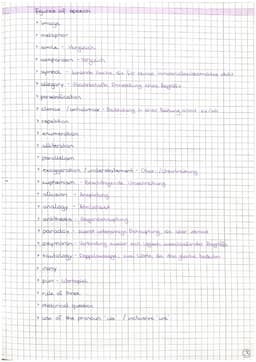 figures of speech
imagery
metaphor
simile - Vergleich
comparison - Vergleich
symbol - konkrete Sache, die für etwas steht
allegory - Darstellung eines Begriffs
personification
climax / anticlimax -
repetition
enumeration
alliteration
parallelism
exaggeration / understatement - Über- / Untertreibung
euphemism - Beschönigende Umschreibung
allusion - Anspielung
analogy - Ähnlichkeit
antithesis - Gegenüberstellung
paradox - zuerst Behauptung, die aber
oxymoron - Verbindung zweier sich Begriffe
tautology - Doppelaussage, zwei Wörter, die das gleiche bedeuten
irony
pun - Wortspiel
rule of three
rhetorical question
use of the pronoun "we" / inclusive "we"